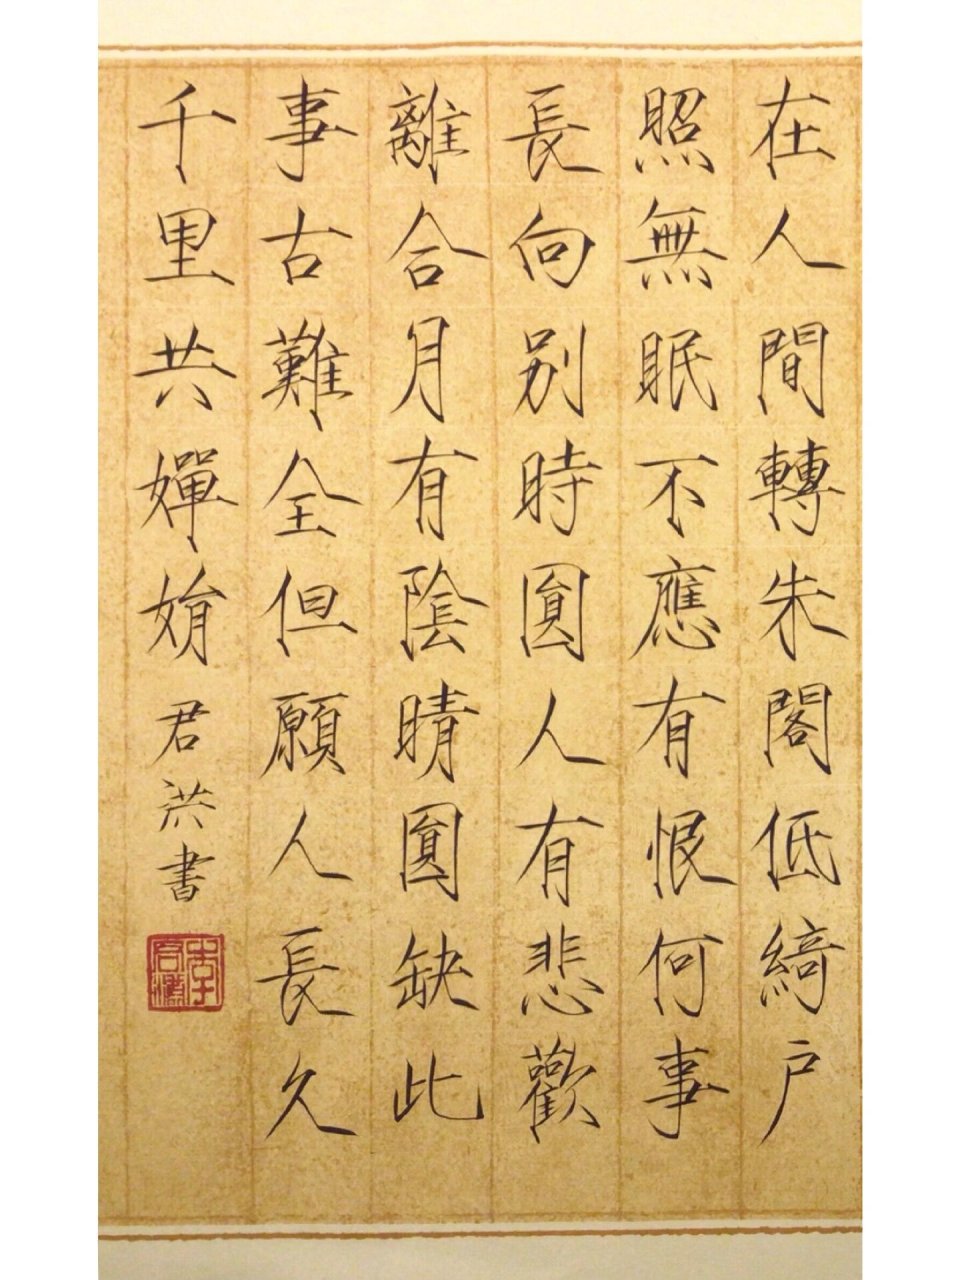 在人間轉朱閣低綺戶
照無眠不應有恨何事
長向別時圓人有悲歡
離合月有陰晴圓缺此
事古難全但願人長久
千里共嬋娟
君洪書
李君洪